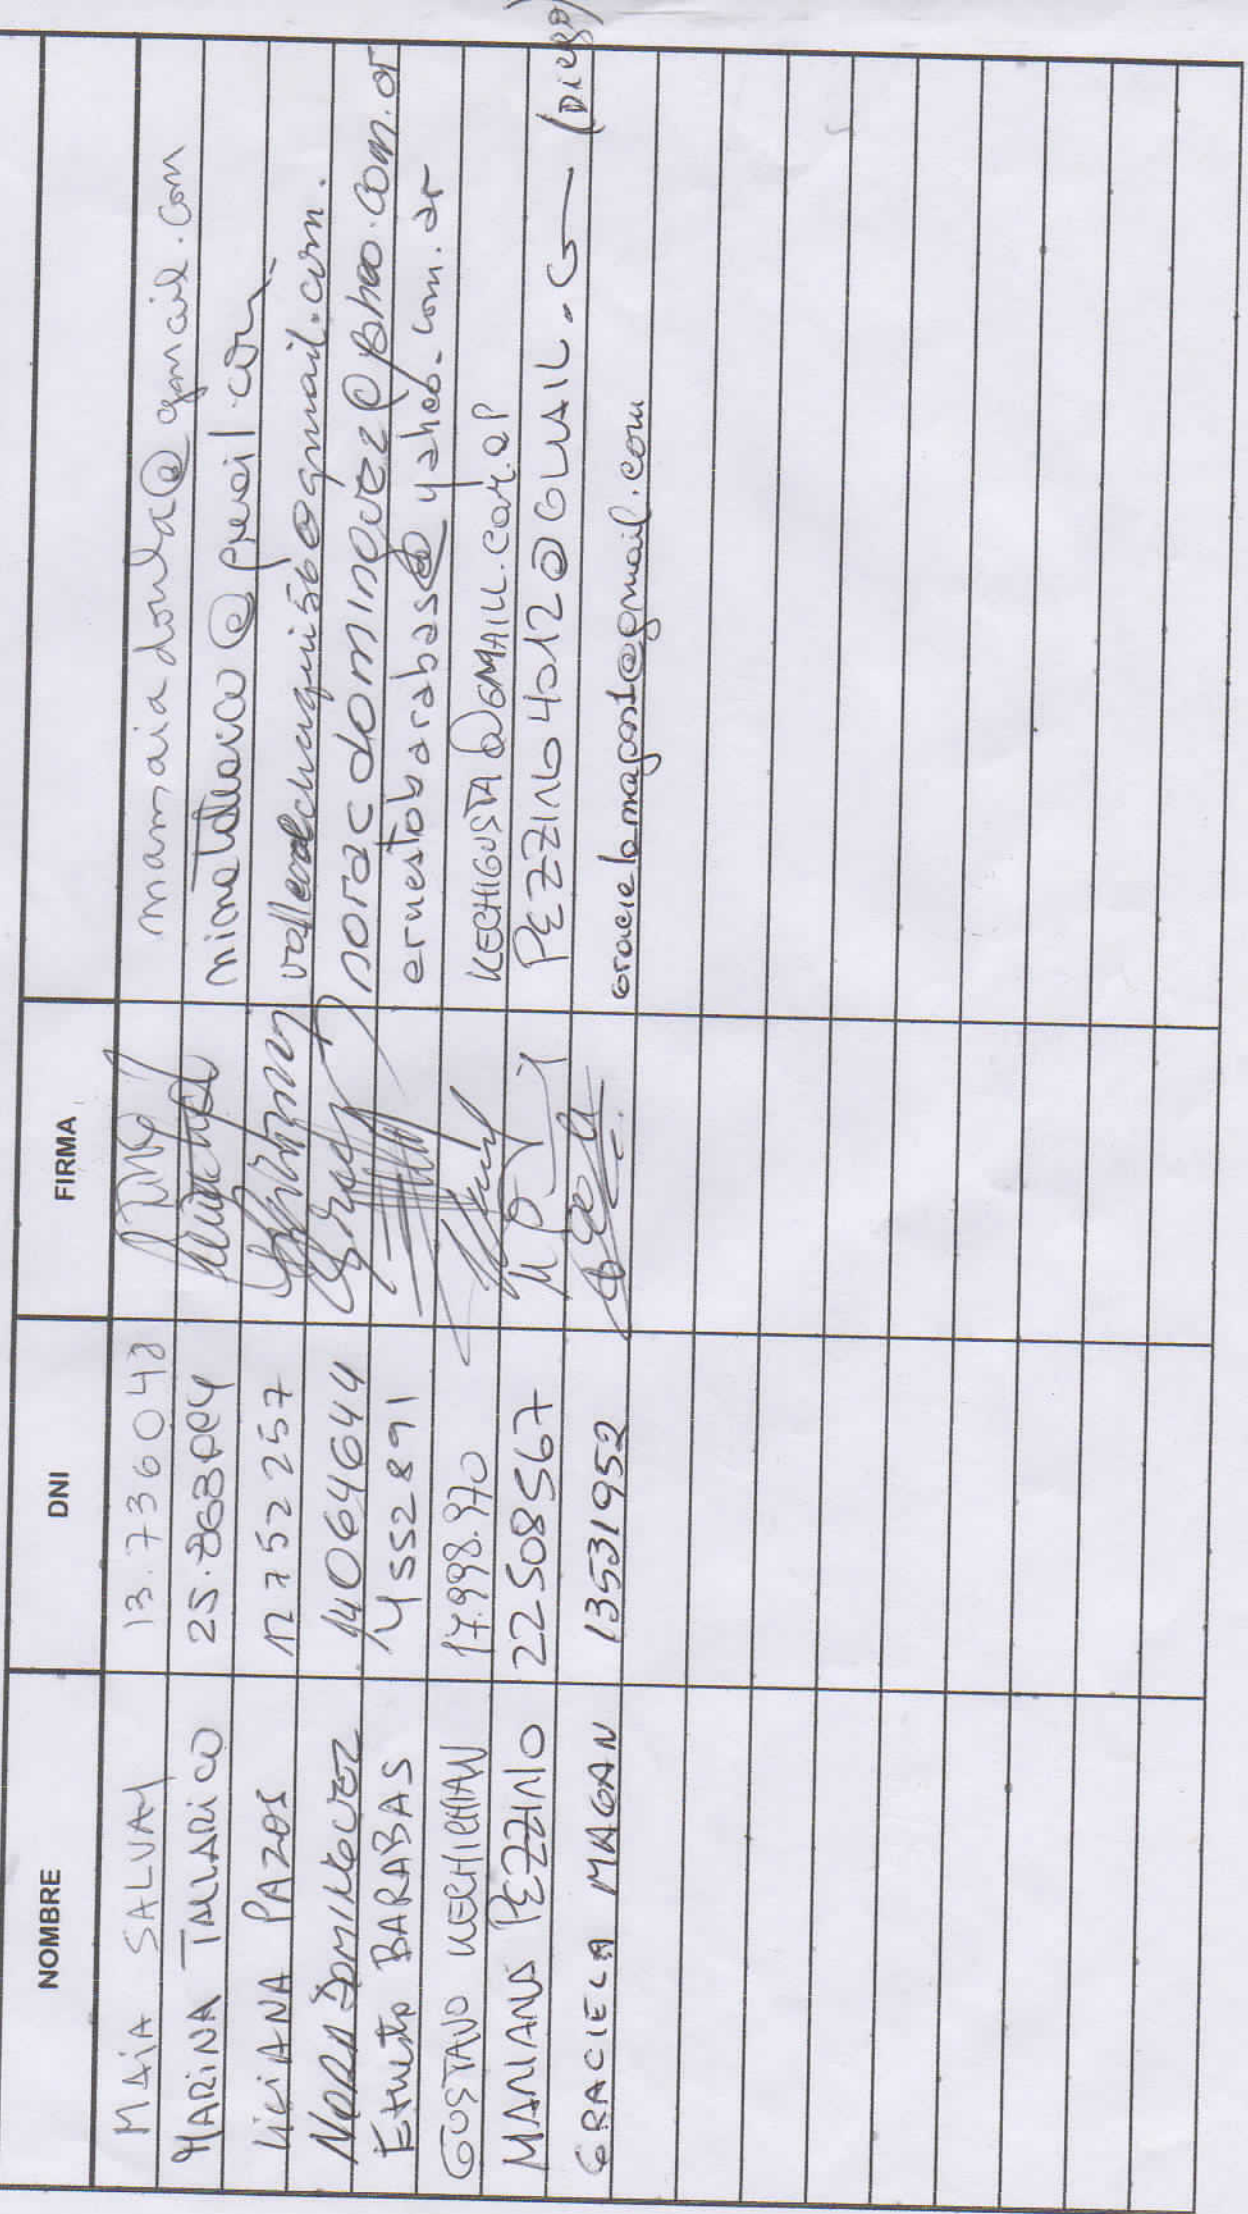 NOMBRE DNI FIRMA
MAIA SALVAY 13.736048 mamaiadovba@gmail.com
MARINA TALLARICO @gmail.com
LICIANA PAZOS 12752257 @gmail.com.
NORA DOMINGUEZ 14064644 noracdominguez@yahoo.com.ar
Ernesto BARABAS 4552891 ernestobarabas@yahoo.com.ar
GUSTAVO KECHICHIAN 17.998.970 KECHIGUSTA@GMAIL.COM.AR
MARIANO PEZZINO 22508567 PEZZINO4012@GMAIL.C (DIEGO)
GRACIELA MAGAN 13531952 gracielamagan1@gmail.com